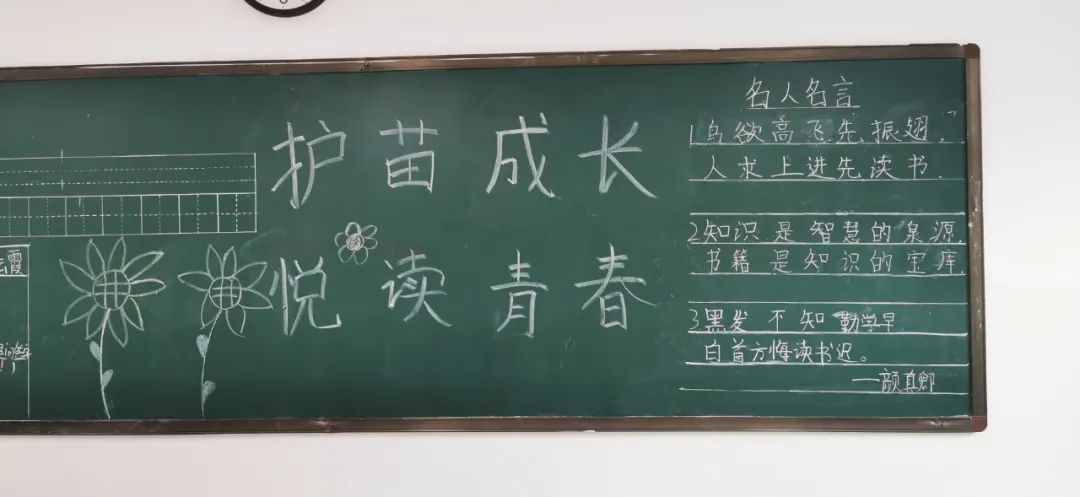 护苗成长
悦读青春
名人名言
1.鸟欲高飞先振翅,
人求上进先读书.
2.知识是智慧的泉源,
书籍是知识的宝库.
3.黑发不知勤学早
白首方悔读书迟。
—颜真卿
霞